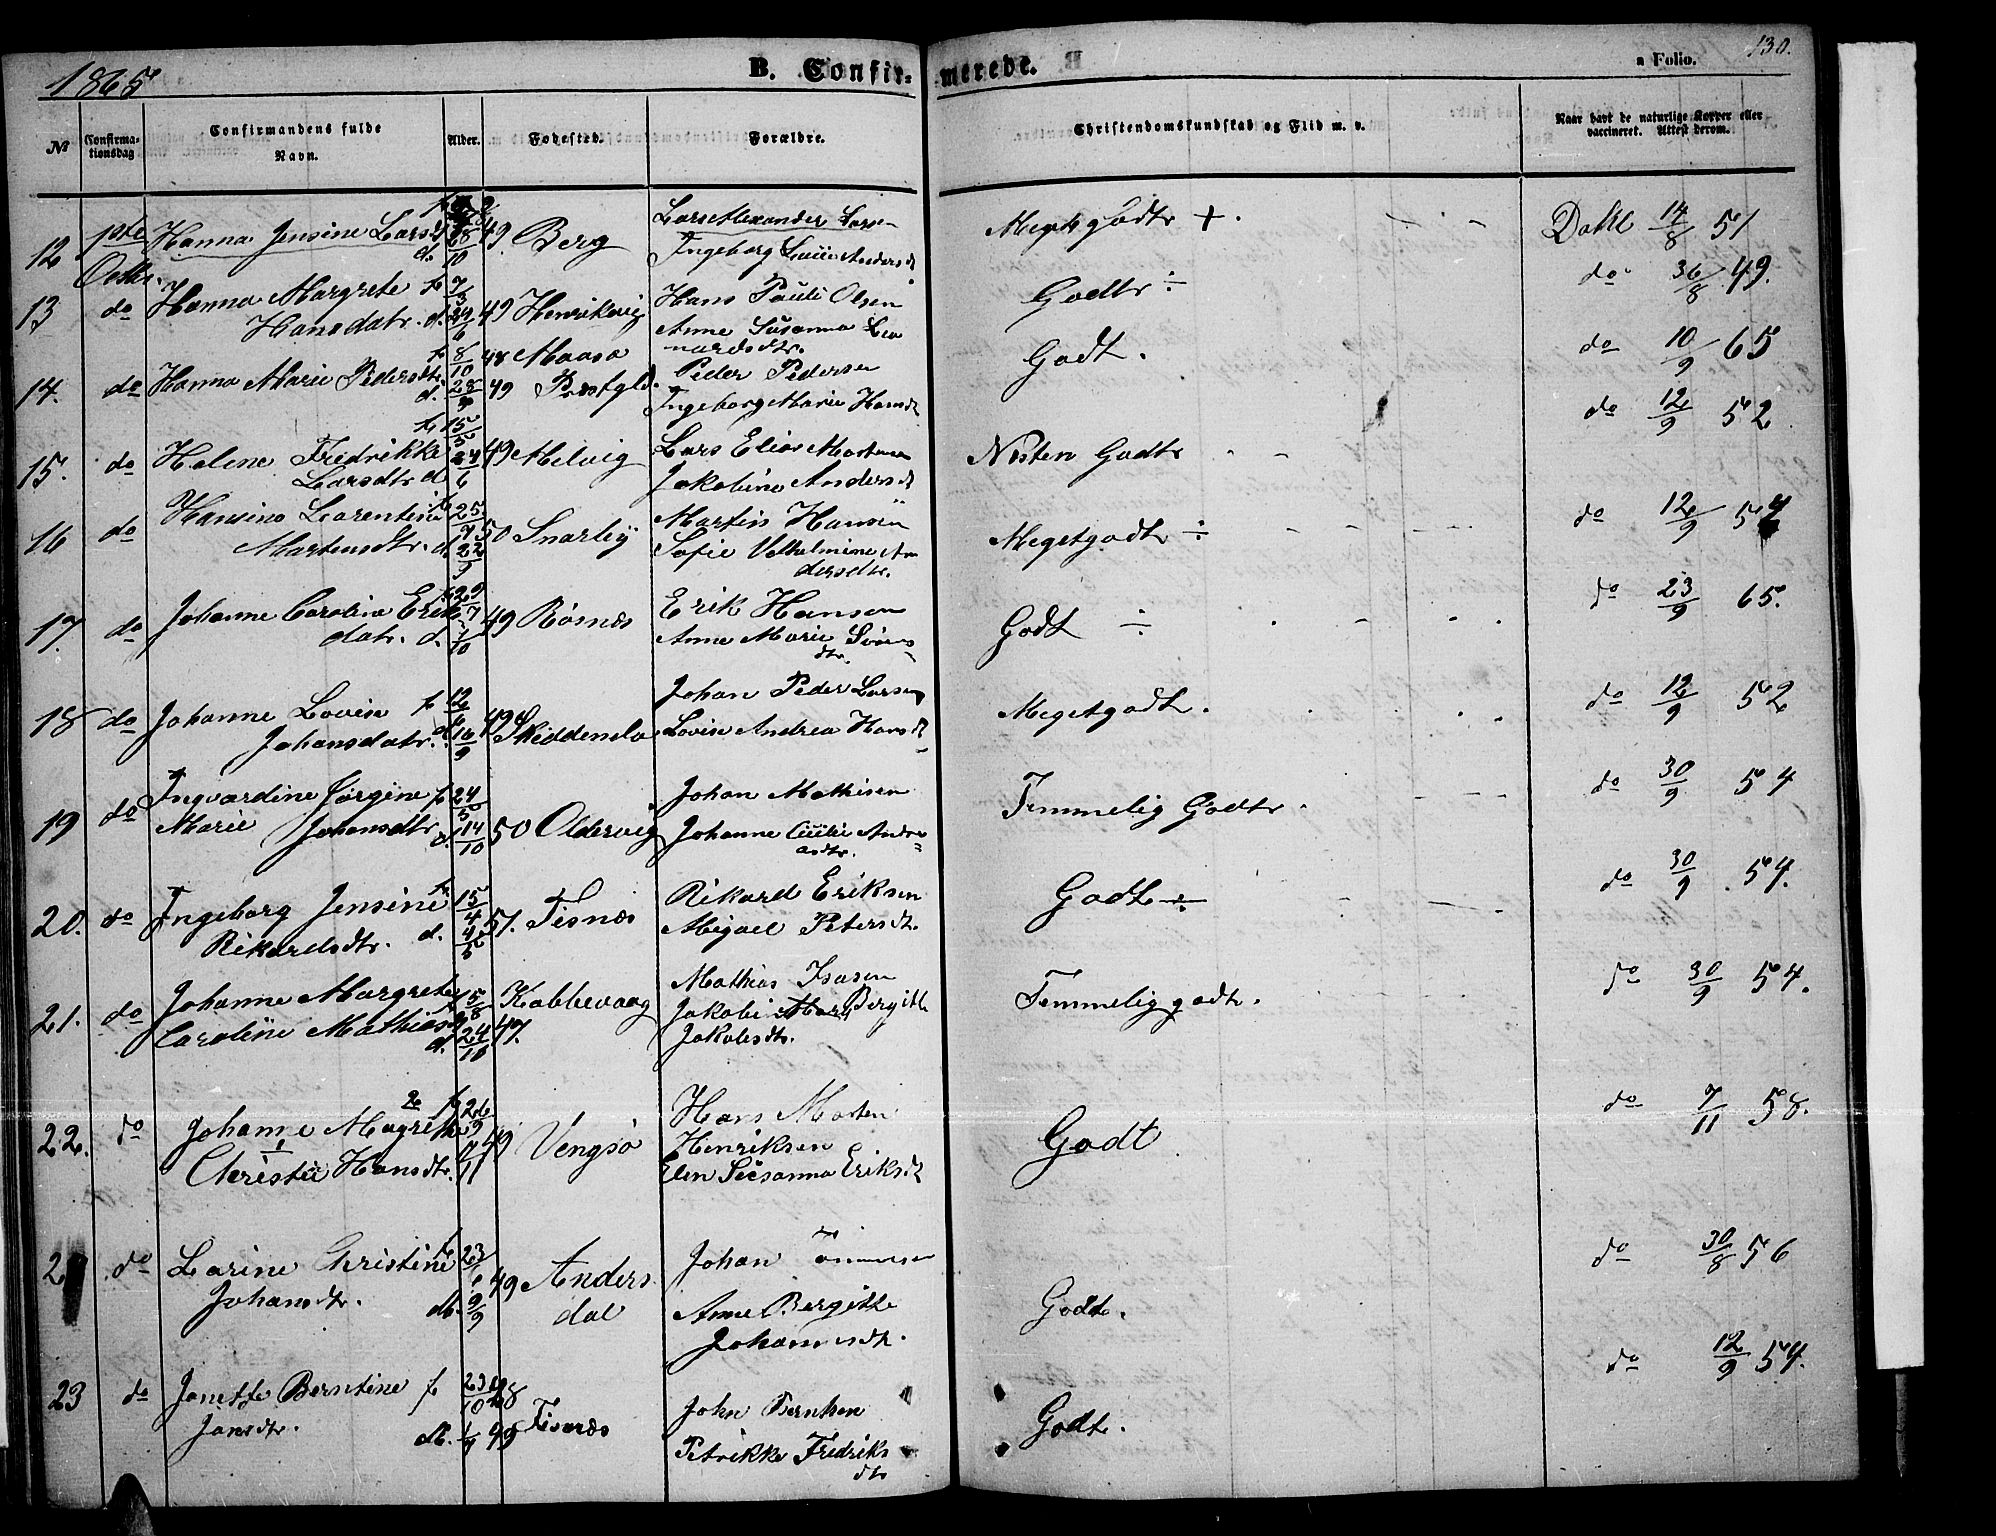 1865
B. Confir-
merede.
a Folio.
130.
№
Confirma-
tionsdag
Confirmandens fulde
Navn.
Alder.
Fødested.
Forældre.
Christendomskundskab og Flid m. v.
Naar havt de naturlige Kopper eller
vaccineret. Attest derom.
12 1ste Octbr. Hanna Jensine Larsd. 49 Berg
Lars Alexander Larsen
Ingeborg Andersd
Megetgodt +.
Dahl 14/8 51
13 do Hanna Margrete f. 7/3
Hansdatr. d. 24/6 49
Hans Pauli Olsen
Anne Susanna Leo
nardsdtr.
Godt ÷
do 36/8 49.
14. do Hanna Marie Pedersdtr. f. 8/10 48 Maasø
d. 28/3 49 Præstgld.
Peder Pedersen
Ingeborg Marie Hansd
Godt.
do 10/9 65
15. do Helene Fredrikke f. 15/5
Larsdtr d 24/6 49 Melvig
Lars Elias Mortensen
Jakobine Andersd
Næsten Godt
do 12/9 52
16 do Hansine Larentine f. 25
Martensdtr. d. 22 50 Snarby
Martin Hansen
Sofie Vilhelmine An
dersdtr.
Megetgodt ÷
do 12/9 54
17. do Johanne Caroline Eriks
datr. d. 49 Risnæs
Erik Hansen
Anne Marie
dtr.
Godt ÷
do 23/9 65.
18 do Johanne Lovise f. 12/6
Johansdatr. d. 16/9 49
Johan Peder Larsen
Lovise Andrea Hansd
Megetgodt.
do 12/9 52
19 do Ingvardine Jørgine f. 24
Marie Johansdtr. d. 14/10 50 Oldervig
Johan Mathisen
Johanne Andre
asdtr.
Temmelig Godt
do 30/9 54
20. do Ingeborg Jensine f. 15/4
Rikardsdtr. d. 4/5 51. Tisnæs
Rikard Eriksen
Migael Petersdt.
Godt ÷
do 30/9 54.
21. do Johanne Margrete f. 5/8 Kobbevaag
Caroline Mathiasd d. 24/10 47.
Mathias Isasen
Jakobi Bergitte
Jakobsdtr.
Temmelig godt.
do 30/9 54.
22. do Johanne Magrethe f. 26/9
Christie Hansdtr. 49 Vengsø
Hans Morten
Henriksen
Elen Susanna Eriksd
Godt
do 7/11 58.
do Larine Christine f. 23
Johansdtr. d. 9/9 49 Anders
dal
Johan
Anne Bergitte
Johannesdt.
Godt.
do 30/8 56
23 do Janette Berntine f. 23/10 48
Jansdtr. d. 1/4 49 Tisnæs
John Berntsen
Petrikke Fredriks
dtr
Godt.
do 12/9 54.